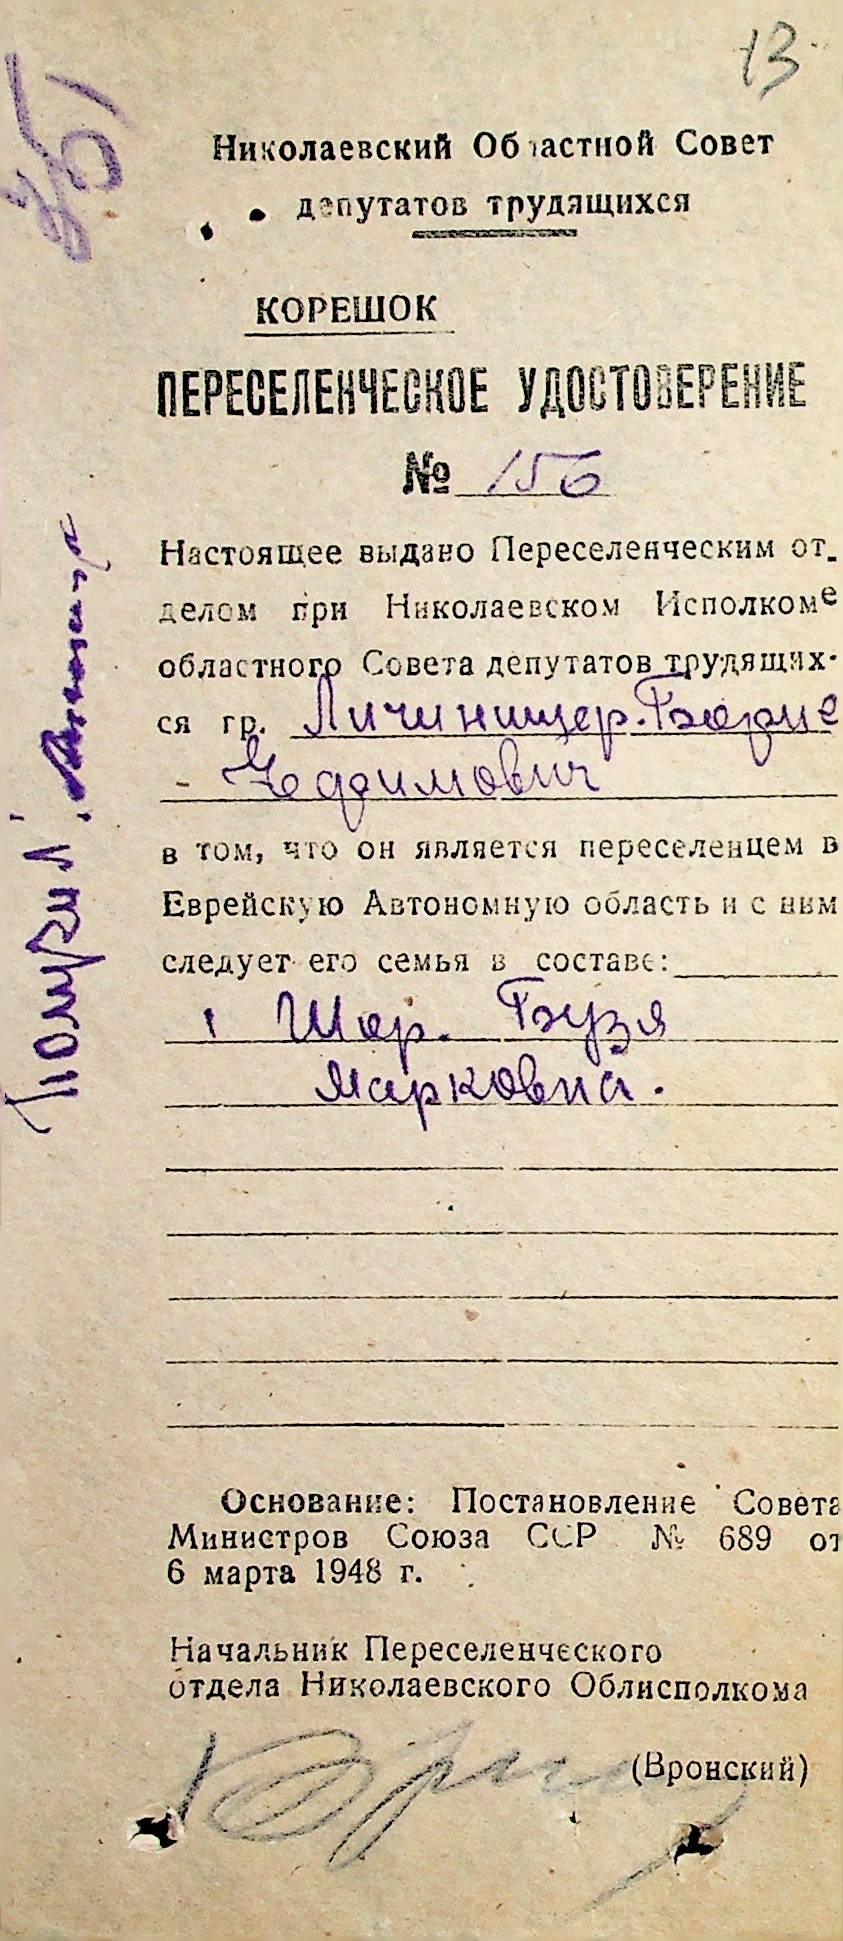 13
351
Николаевский Областной Совет
депутатов трудящихся
КОРЕШОК
ПЕРЕСЕЛЕНЧЕСКОЕ УДОСТОВЕРЕНИЕ
№ 156
Настоящее выдано Переселенческим от-
делом при Николаевском Исполкоме
областного Совета депутатов трудящих-
ся гр. Личиницер. Борис
- Ефимович
в том, что он является переселенцем в
Еврейскую Автономную область и с ним
следует его семья в составе:
1 Шор. Бузя
Марковна.
Получил:
Основание: Постановление Совета
Министров Союза ССР № 689 от
6 марта 1948 г.
Начальник Переселенческого
отдела Николаевского Облисполкома
(Вронский)